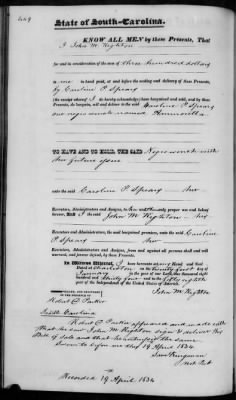 State of South-Carolina.
KNOW ALL MEN by these Presents, That
I John M. Righton
for and in consideration of the sum of three hundred dollars
to me in hand paid, at and before the sealing and delivery of these Presents,
by Caroline P Spears
(the receipt whereof I do hereby acknowledge) have bargained and sold, and by these
Presents, do bargain, sell and deliver to the said Caroline P Spears
one negro wench named
TO HAVE AND TO HOLD, THE SAID Negro wench with
her future issue
unto the said Caroline P. Spears her
Executors, Administrators and Assigns, to her and their only proper use and behoof
forever. And I the said John M Righton my
Executors, Administrators and Assigns, the said bargained premises, unto the said Caroline
P Spears her
Executors, Administrators and Assigns, from and against all persons shall and will
warrant, and forever defend, by these Presents.
In Witness Whereof, I have hereunto set my Hand and Seal
Dated at Charleston on the thirty first day of
January in the year of our Lord one thousand eight
hundred and thirty four and in the fifty eighth
year of the Independence of the United States of America.
SIGNED, SEALED AND DELIVERED
IN THE PRESENCE OF
John M. Righton
Robert C
South Carolina
Robert C appeared and made oath
That he saw John M. Righton sign & deliver this
Bill of Sale and that he witnessed the same
Sworn to before me this 19 April 1834
Not Pub
Recorded 19th April 1834